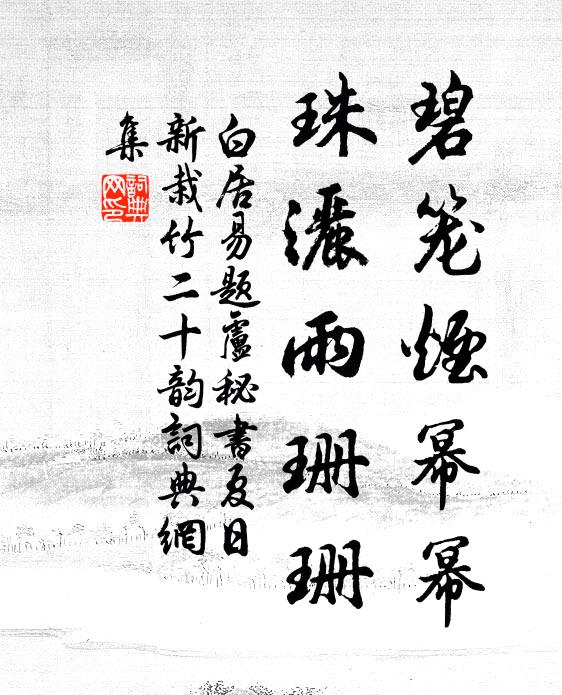 碧笼煙幂幂
珠灑雨珊珊
白居易題盧秘書夏日
新栽竹二十韵詞典網
集
詞典
网印